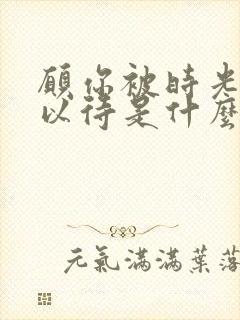 願你被時光
以待是什麼
元氣滿滿葉落